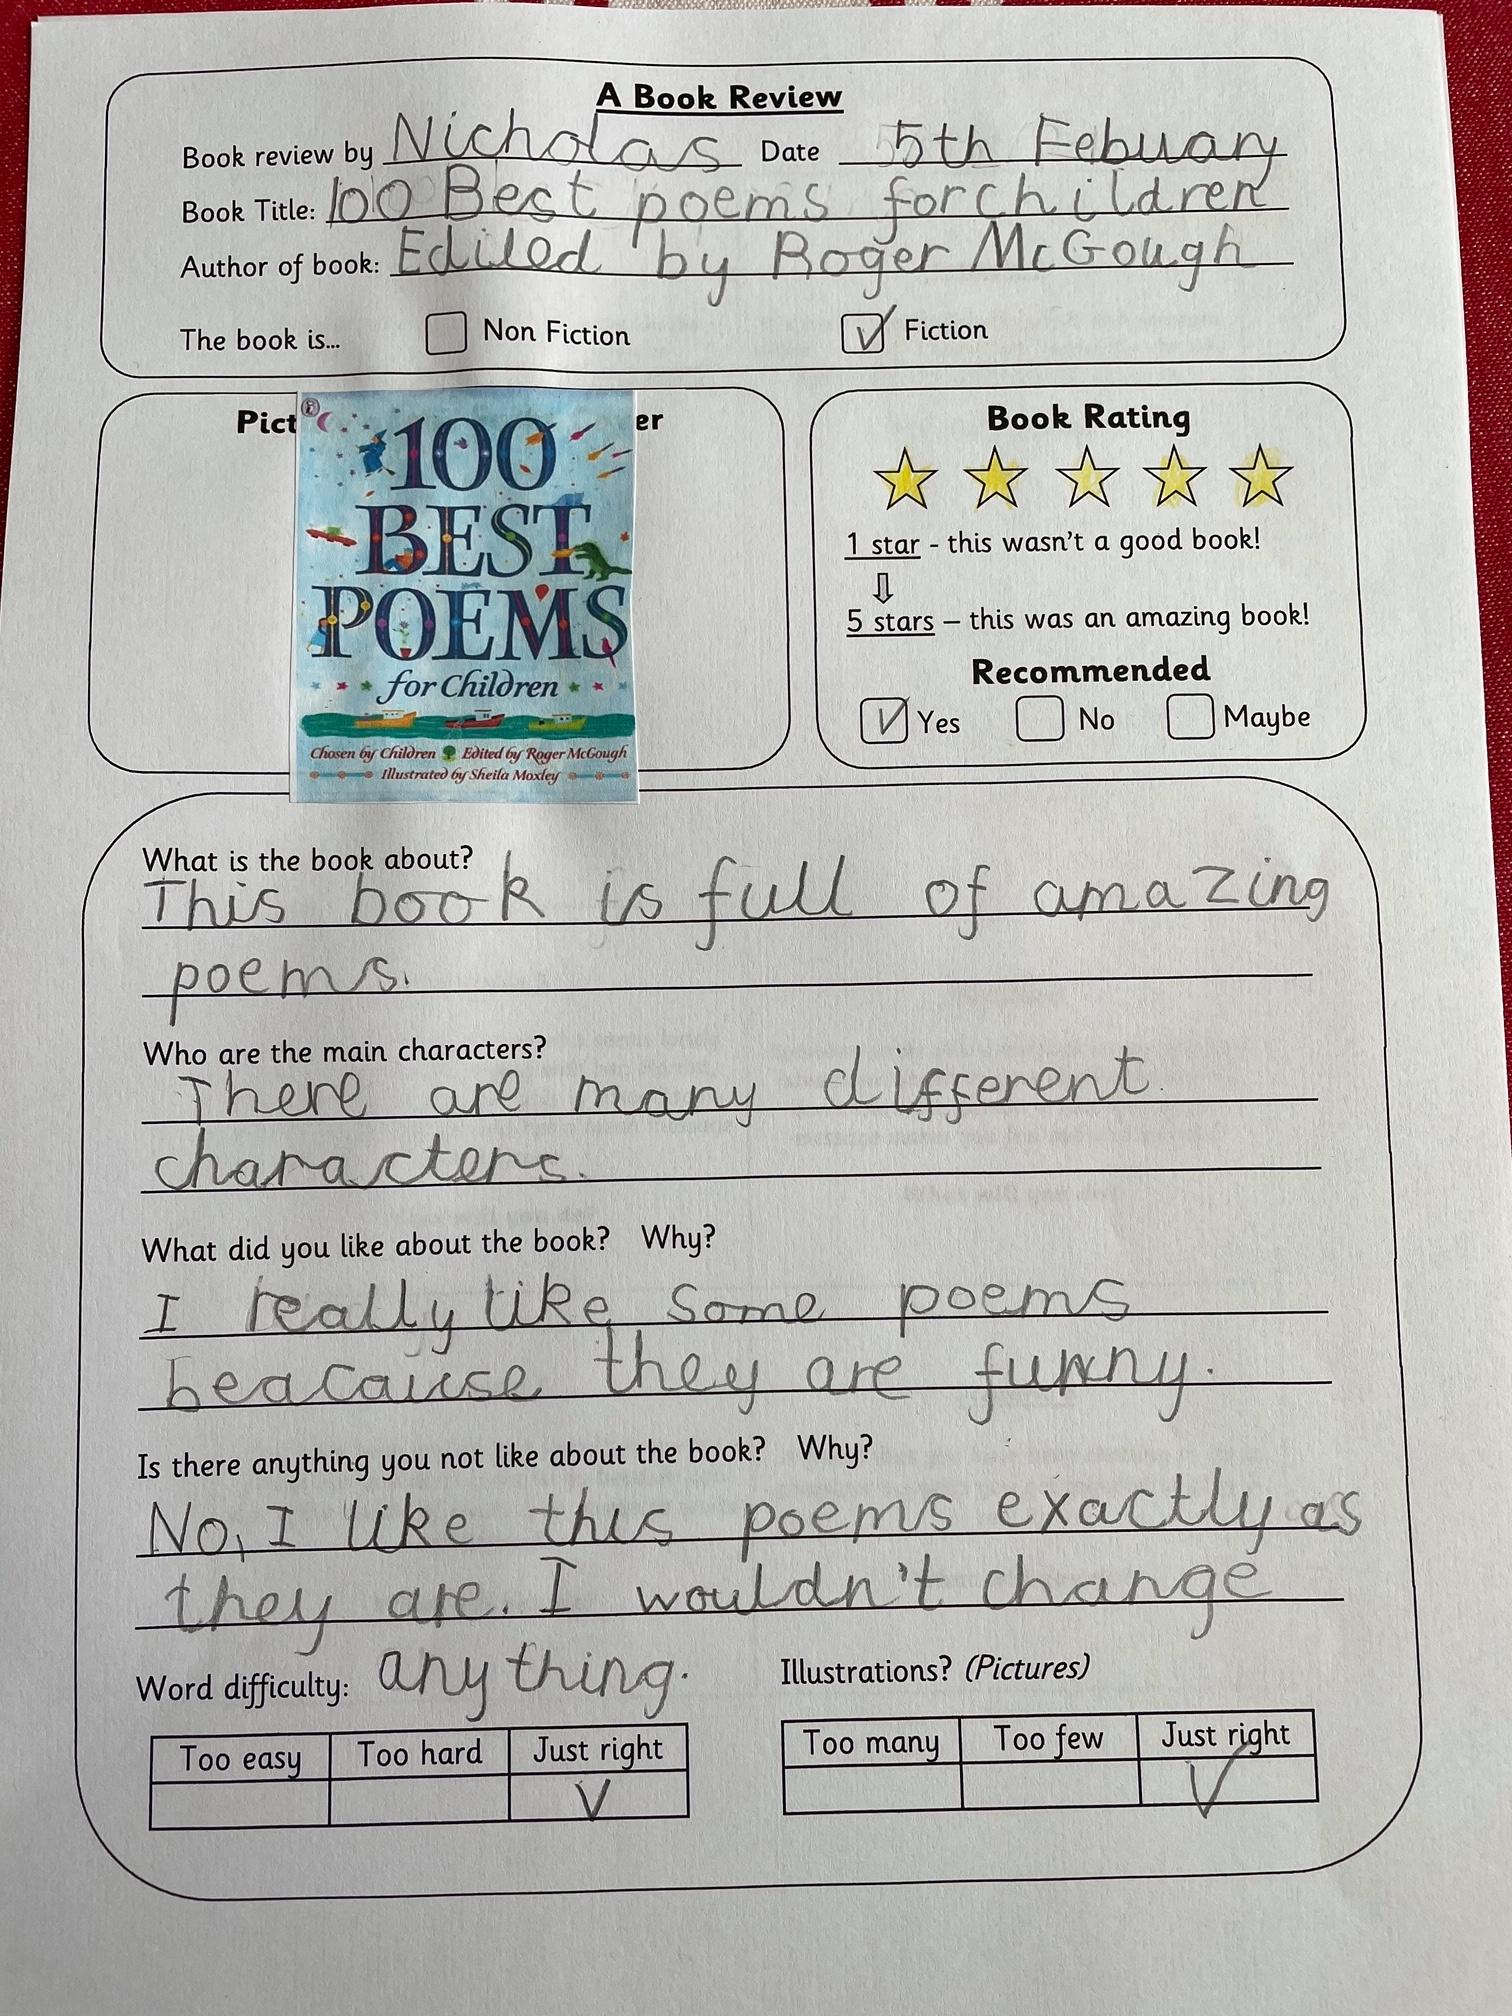 A Book Review
Book review by Nicholas Date 5th Febuary
Book Title: 100 Best poems for children
Author of book: Ediled by Roger McGough
The book is... Non Fiction Fiction
Pict er
100
BEST
POEMS
for Children
Chosen by Children Edited by Roger McGough
Illustrated by Sheila Moxley
Book Rating
1 star - this wasn't a good book!
5 stars – this was an amazing book!
Recommended
Yes No Maybe
What is the book about?
This book is full of amazing
poems.
Who are the main characters?
There are many different
characters.
What did you like about the book? Why?
I really like some poems
beacause they are funny.
Is there anything you not like about the book? Why?
No, I like this poems exactly as
they are. I wouldn't change
anything.
Word difficulty:
Too easy Too hard Just right
Illustrations? (Pictures)
Too many Too few Just right